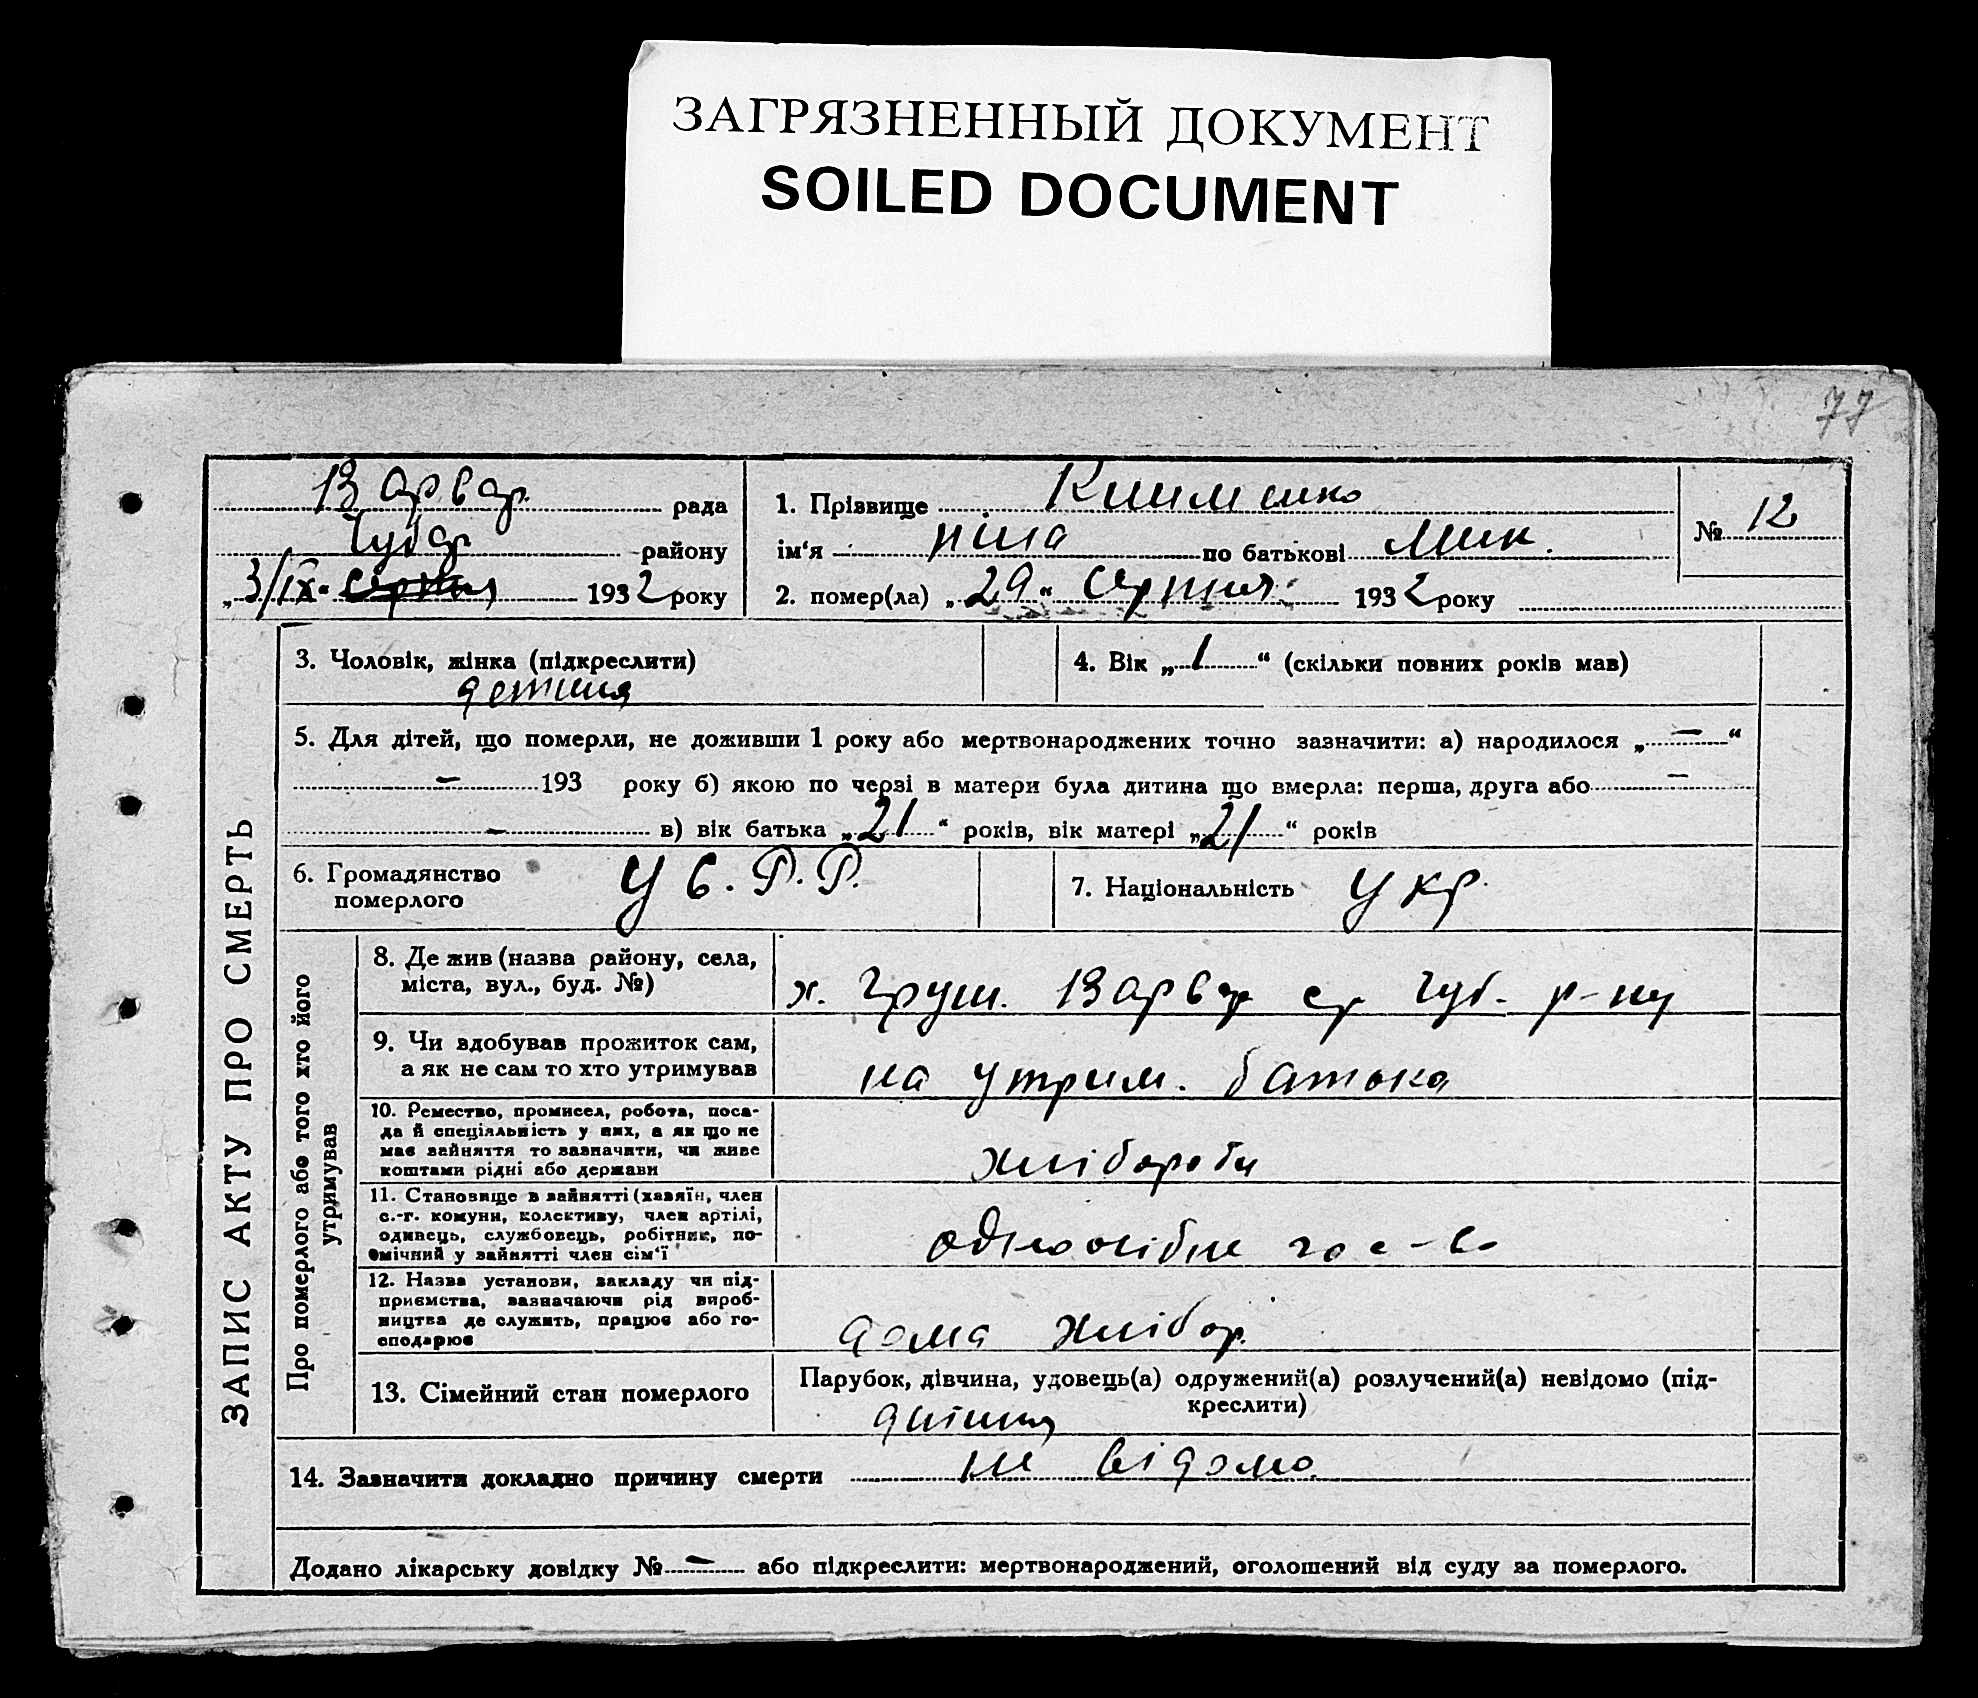 ЗАГРЯЗНЕННЫЙ ДОКУМЕНТ
SOILED DOCUMENT
77
ЗАПИС АКТУ ПРО СМЕРТЬ
Варвар. рада
Чубар району
„3/IX. серпня 1932 року
1. Прізвище Клименко
ім‘я Ніна по батькові Мик.
2. помер(ла) „29“ серпня 1932 року
№ 12
3. Чоловік, жінка (підкреслити)
детиня
4. Вік „1“ (скільки повних років мав)
5. Для дітей, що померли, не доживши 1 року або мертвонароджених точно зазначити: а) народилося „—“
— 193 року б) якою по черзі в матери була дитина що вмерла: перша, друга або —
— в) вік батька „21“ років, вік матері „21“ років
6. Громадянство
померлого
У С. Р. Р.
7. Національність Укр.
Про померлого або того хто його
утримував
8. Де жив (назва району, села,
міста, вул., буд. №)
х. Груш. Варвар ср Чуб. р-ну
9. Чи здобував прожиток сам,
а як не сам то хто утримував
на утрим. батька
10. Ремество, промисел, робота, поса-
да й спеціяльність у них, а як що не
має зайняття то зазначити, чи живе
коштами рідні або держави
хліборобн
11. Становище в зайнятті (хазяїн, член
с.-г. комуни, колективу, член артілі,
одинець, службовець, робітник, по-
мічний у зайнятті член сім‘ї
одноосібне гос-во
12. Назва установи, закладу чи під-
приємства, зазначаючи рід вироб-
ництва де служить, працює або го-
сподарює
дома хлібор.
13. Сімейний стан померлого
Парубок, дівчина, удовець(а) одружений(а) розлучений(а) невідомо (під-
креслити)
14. Зазначити докладно причину смерти не відомо
Додано лікарську довідку № — або підкреслити: мертвонароджений, оголошений від суду за померлого.